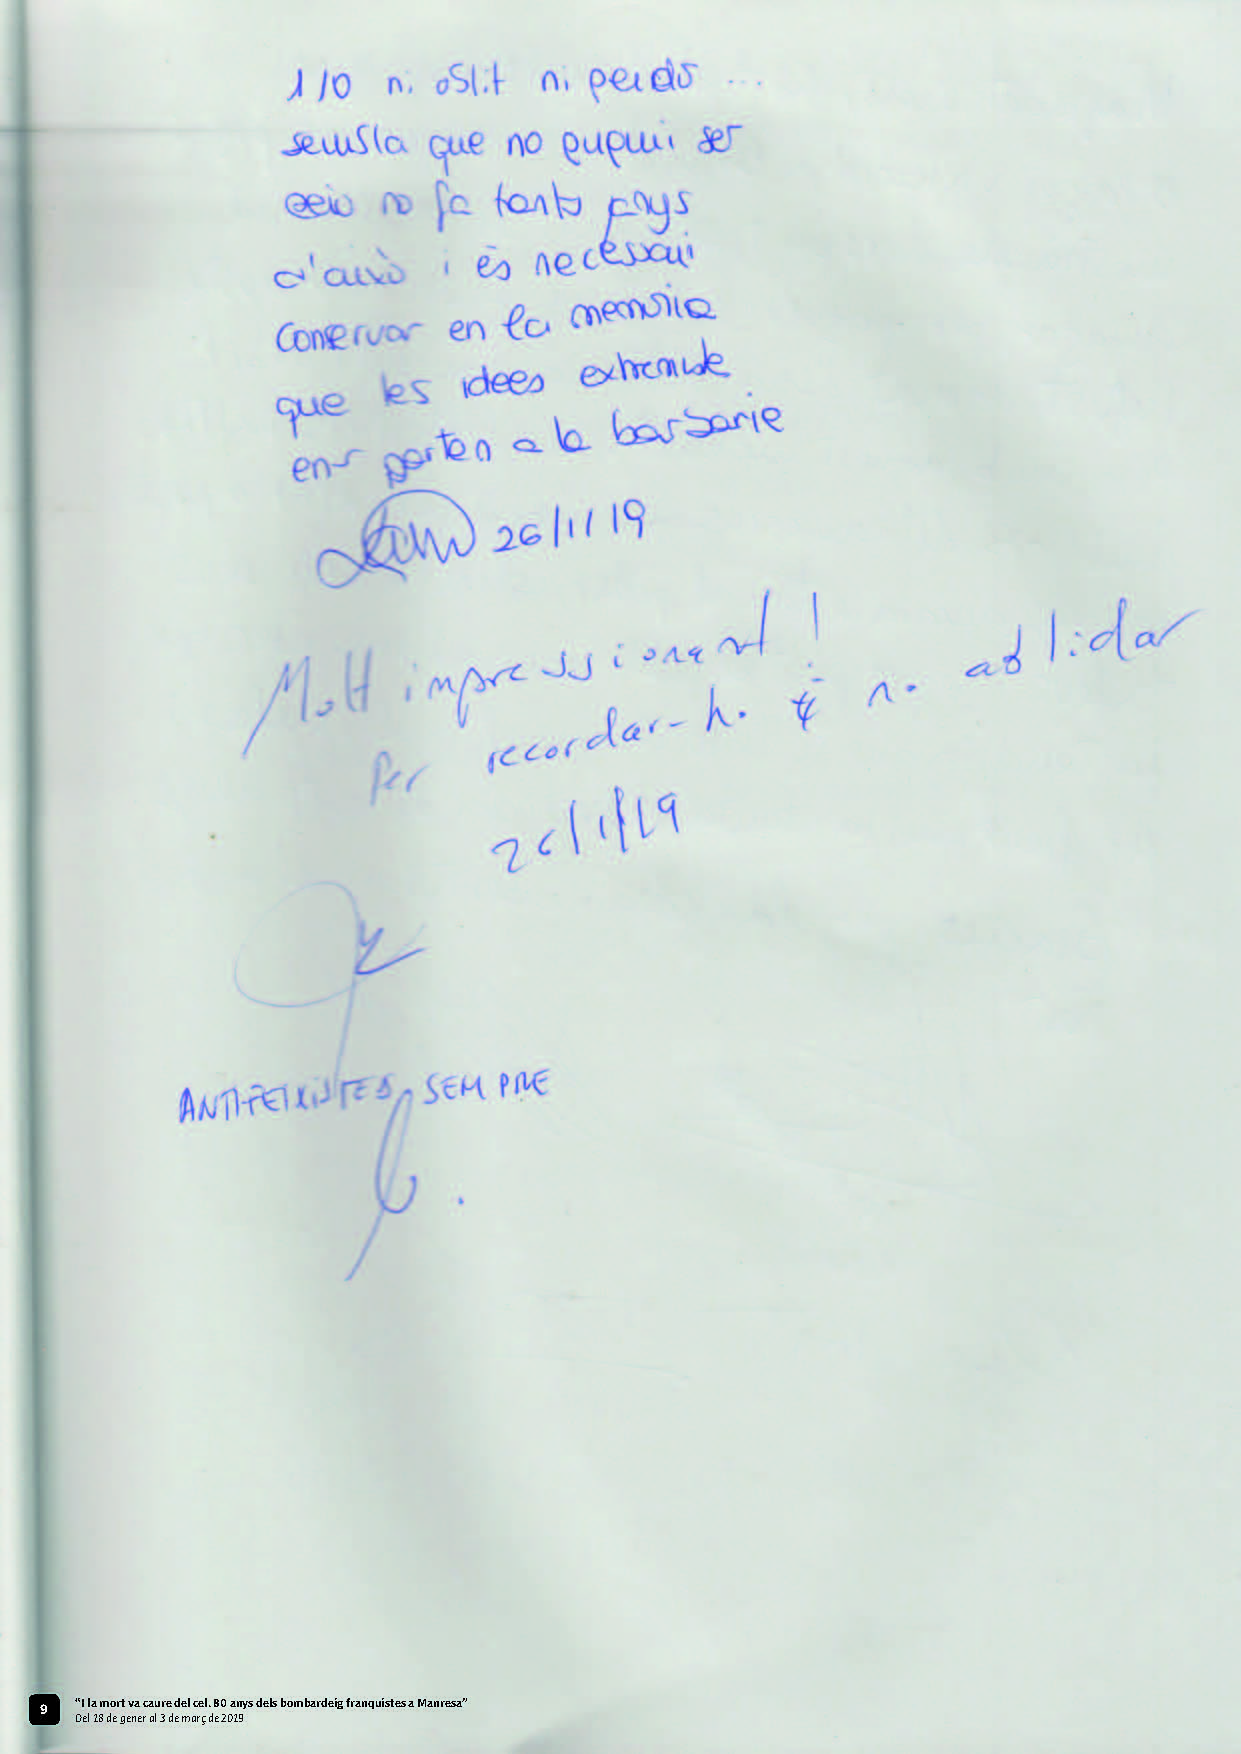 1/0 ni oblit ni perdó ...
sembla que no pugui ser
però no fa tants anys
d'això i és necessari
conservar en la memòria
que les idees extremiste
ens porten a la barbarie
26/1/19
Molt impressionant!
Per recordar-ho i no oblidar
26/1/19
ANTIFEIXISTES SEMPRE
9
"I la mort va caure del cel. 80 anys dels bombardeig franquistes a Manresa"
Del 18 de gener al 3 de març de 2019